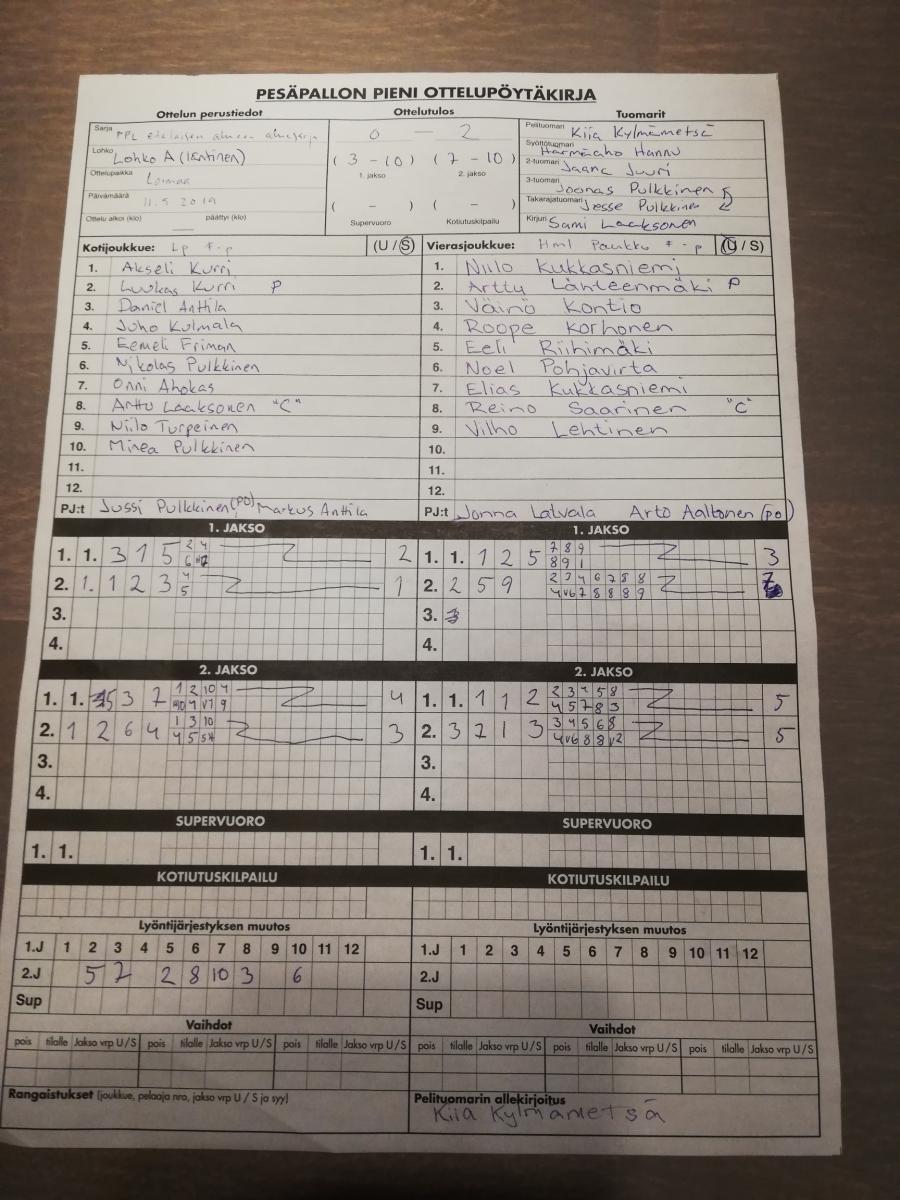 PESÄPALLON PIENI OTTELUPÖYTÄKIRJA
Ottelun perustiedot Ottelutulos Tuomarit
Sarja PPL eteläisen alueen aluesarja
Lohko Lohko A (läntinen)
Ottelupaikka Loimaa
Päivämäärä 11.5 2019
Ottelu alkoi (klo) päättyi (klo)
0 — 2
( 3 - 10 ) ( 7 - 10 )
1. jakso 2. jakso
( - ) ( - )
Supervuoro Kotiutuskilpailu
Pelituomari Kiia Kylmämetsä
Syöttötuomari Harmaaho Hannu
2-tuomari Jaana Juuri
3-tuomari Joonas Pulkkinen
Takarajatuomari Jesse Pulkkinen
Kirjuri Sami Laaksonen
Kotijoukkue: Lp F-p (U / S)
1. Akseli Kurri
2. Luukas Kurri P
3. Daniel Anttila
4. Juho Kulmala
5. Eemeli Friman
6. Nikolas Pulkkinen
7. Onni Ahokas
8. Arttu Laaksonen "C"
9. Niilo Turpeinen
10. Minea Pulkkinen
11.
12.
PJ:t Jussi Pulkkinen (PO) Markus Anttila
Vierasjoukkue: Hml Pankko F-p (U / S)
1. Niilo Kukkasniemi
2. Arttu Lähteenmäki P
3. Väinö Kontio
4. Roope Korhonen
5. Eeli Riihimäki
6. Noel Pohjavirta
7. Elias Kukkasniemi
8. Reino Saarinen "C"
9. Vilho Lehtinen
10.
11.
12.
PJ:t Jonna Latvala Arto Aaltonen (po)
1. JAKSO 1. JAKSO
1. 1. 3 1 5 2 4 2
2. 1. 1 2 3 4 5 1
3.
4.
1. 1. 1 2 5 7 8 9 8 9 1 3
2. 2 5 9 2 3 4 6 7 8 8 4 V6 7 8 8 8 9 7
3.
4.
2. JAKSO 2. JAKSO
1. 1. 5 3 7 1 2 10 4 4
2. 1 2 6 4 1 3 10 4 5 3
3.
4.
1. 1. 1 1 2 2 3 4 5 8 4 5 7 8 3 5
2. 3 7 1 3 3 4 5 6 8 4 V6 8 8 V2 5
3.
4.
SUPERVUORO SUPERVUORO
1. 1. 1. 1.
KOTIUTUSKILPAILU KOTIUTUSKILPAILU
Lyöntijärjestyksen muutos Lyöntijärjestyksen muutos
1.J 1 2 3 4 5 6 7 8 9 10 11 12 1.J 1 2 3 4 5 6 7 8 9 10 11 12
2.J 5 7 2 8 10 3 6 2.J
Sup Sup
Vaihdot Vaihdot
pois tilalle Jakso vrp U / S pois tilalle Jakso vrp U / S pois tilalle Jakso vrp U / S pois tilalle Jakso vrp U / S pois tilalle Jakso vrp U / S pois tilalle Jakso vrp U / S
Rangaistukset (joukkue, pelaaja nro, jakso vrp U / S ja syy)
Pelituomarin allekirjoitus
Kiia Kylmämetsä